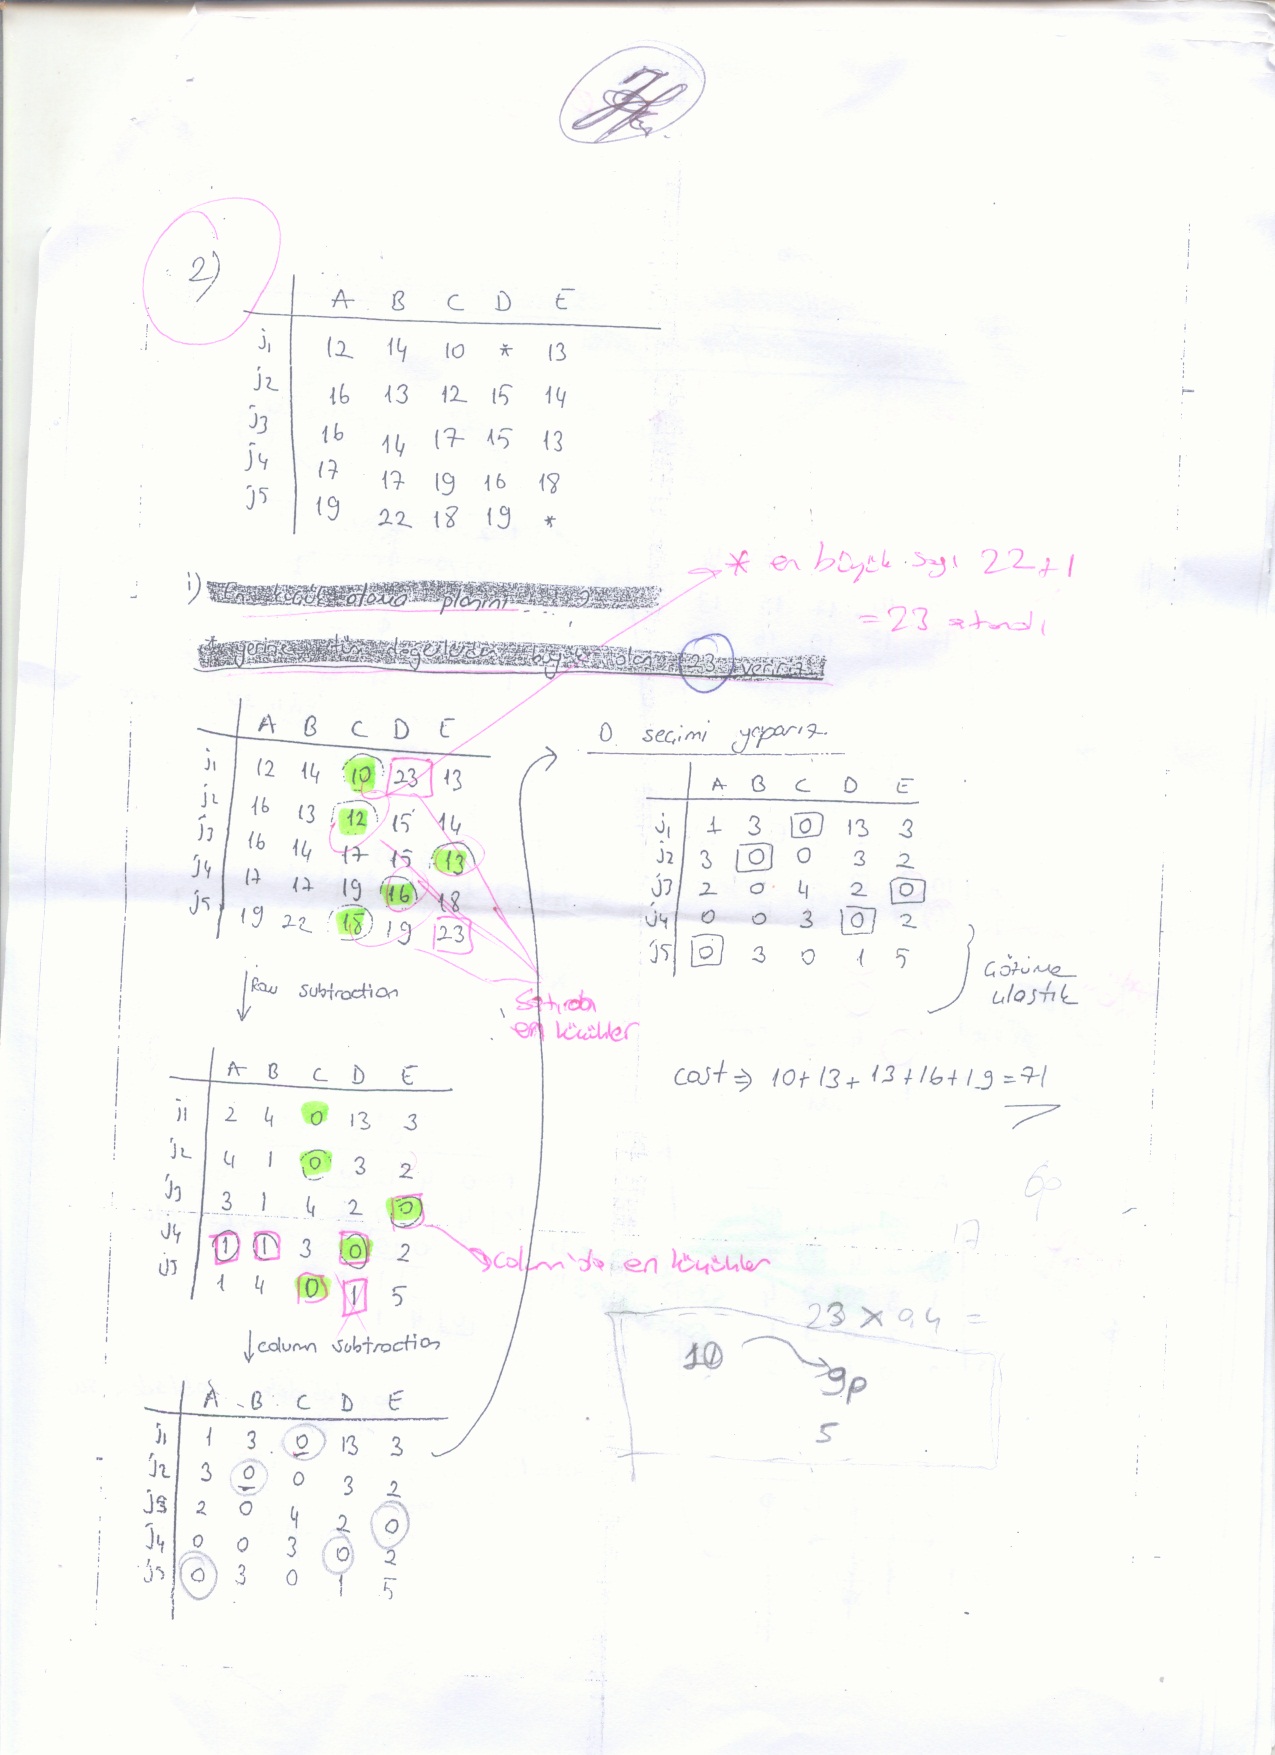 2)
A B C D E
j1 12 14 10 * 13
j2 16 13 12 15 14
j3 16 14 17 15 13
j4 17 17 19 16 18
j5 19 22 18 19 *
* en büyük sayı 22+1
= 23 atandı
i) olana planını
* yerine değerlerden büyük olan 23 veririz
A B C D E
j1 12 14 10 23 13
j2 16 13 12 15 14
j3 16 14 17 15 13
j4 17 17 19 16 18
j5 19 22 18 19 23
Row subtraction
Satırda
en küçükler
A B C D E
j1 2 4 0 13 3
j2 4 1 0 3 2
j3 3 1 4 2 0
j4 1 1 3 0 2
j5 1 4 0 1 5
column'da en küçükler
column subtraction
A B C D E
j1 1 3 0 13 3
j2 3 0 0 3 2
j3 2 0 4 2 0
j4 0 0 3 0 2
j5 0 3 0 1 5
0 seçimi yaparız.
A B C D E
j1 1 3 0 13 3
j2 3 0 0 3 2
j3 2 0 4 2 0
j4 0 0 3 0 2
j5 0 3 0 1 5
Çözüme
ulaştık
cost ⇒ 10+13+13+16+19=71
6p
17
23 x 0,4 =
10
9p
5